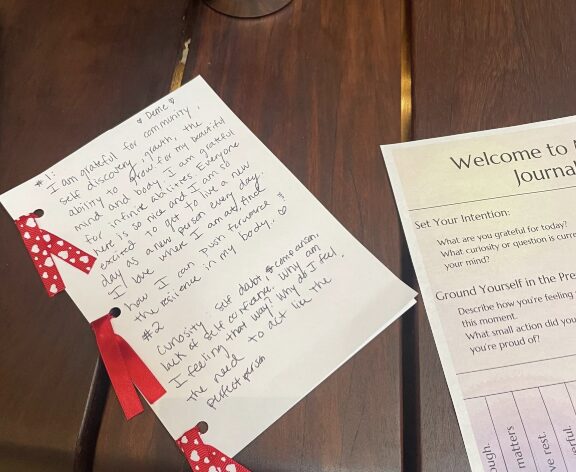 ♡ Deme ♡
#1:
I am grateful for community,
self discovery, growth, the
ability to grow for my beautiful
mind and body. I am grateful
for infinite abilities. Everyone
here is so nice and I am so
excited to get to live a new
day as a new person every day.
I love where I am at and
how I can push forward
the resilience in my body.. ♡
#2
Curiosity: self dabt, comparison,
lack of self confidence. Why am
I feeling that way? Why do I feel
the need to act like the
perfect person
Welcome to
Journal
Set Your Intention:
What are you grateful for today?
What curiosity or question is
your mind?
Ground Yourself in the
Describe how you're feeling
this moment.
What small action did you
you're proud of?
matters
rest.